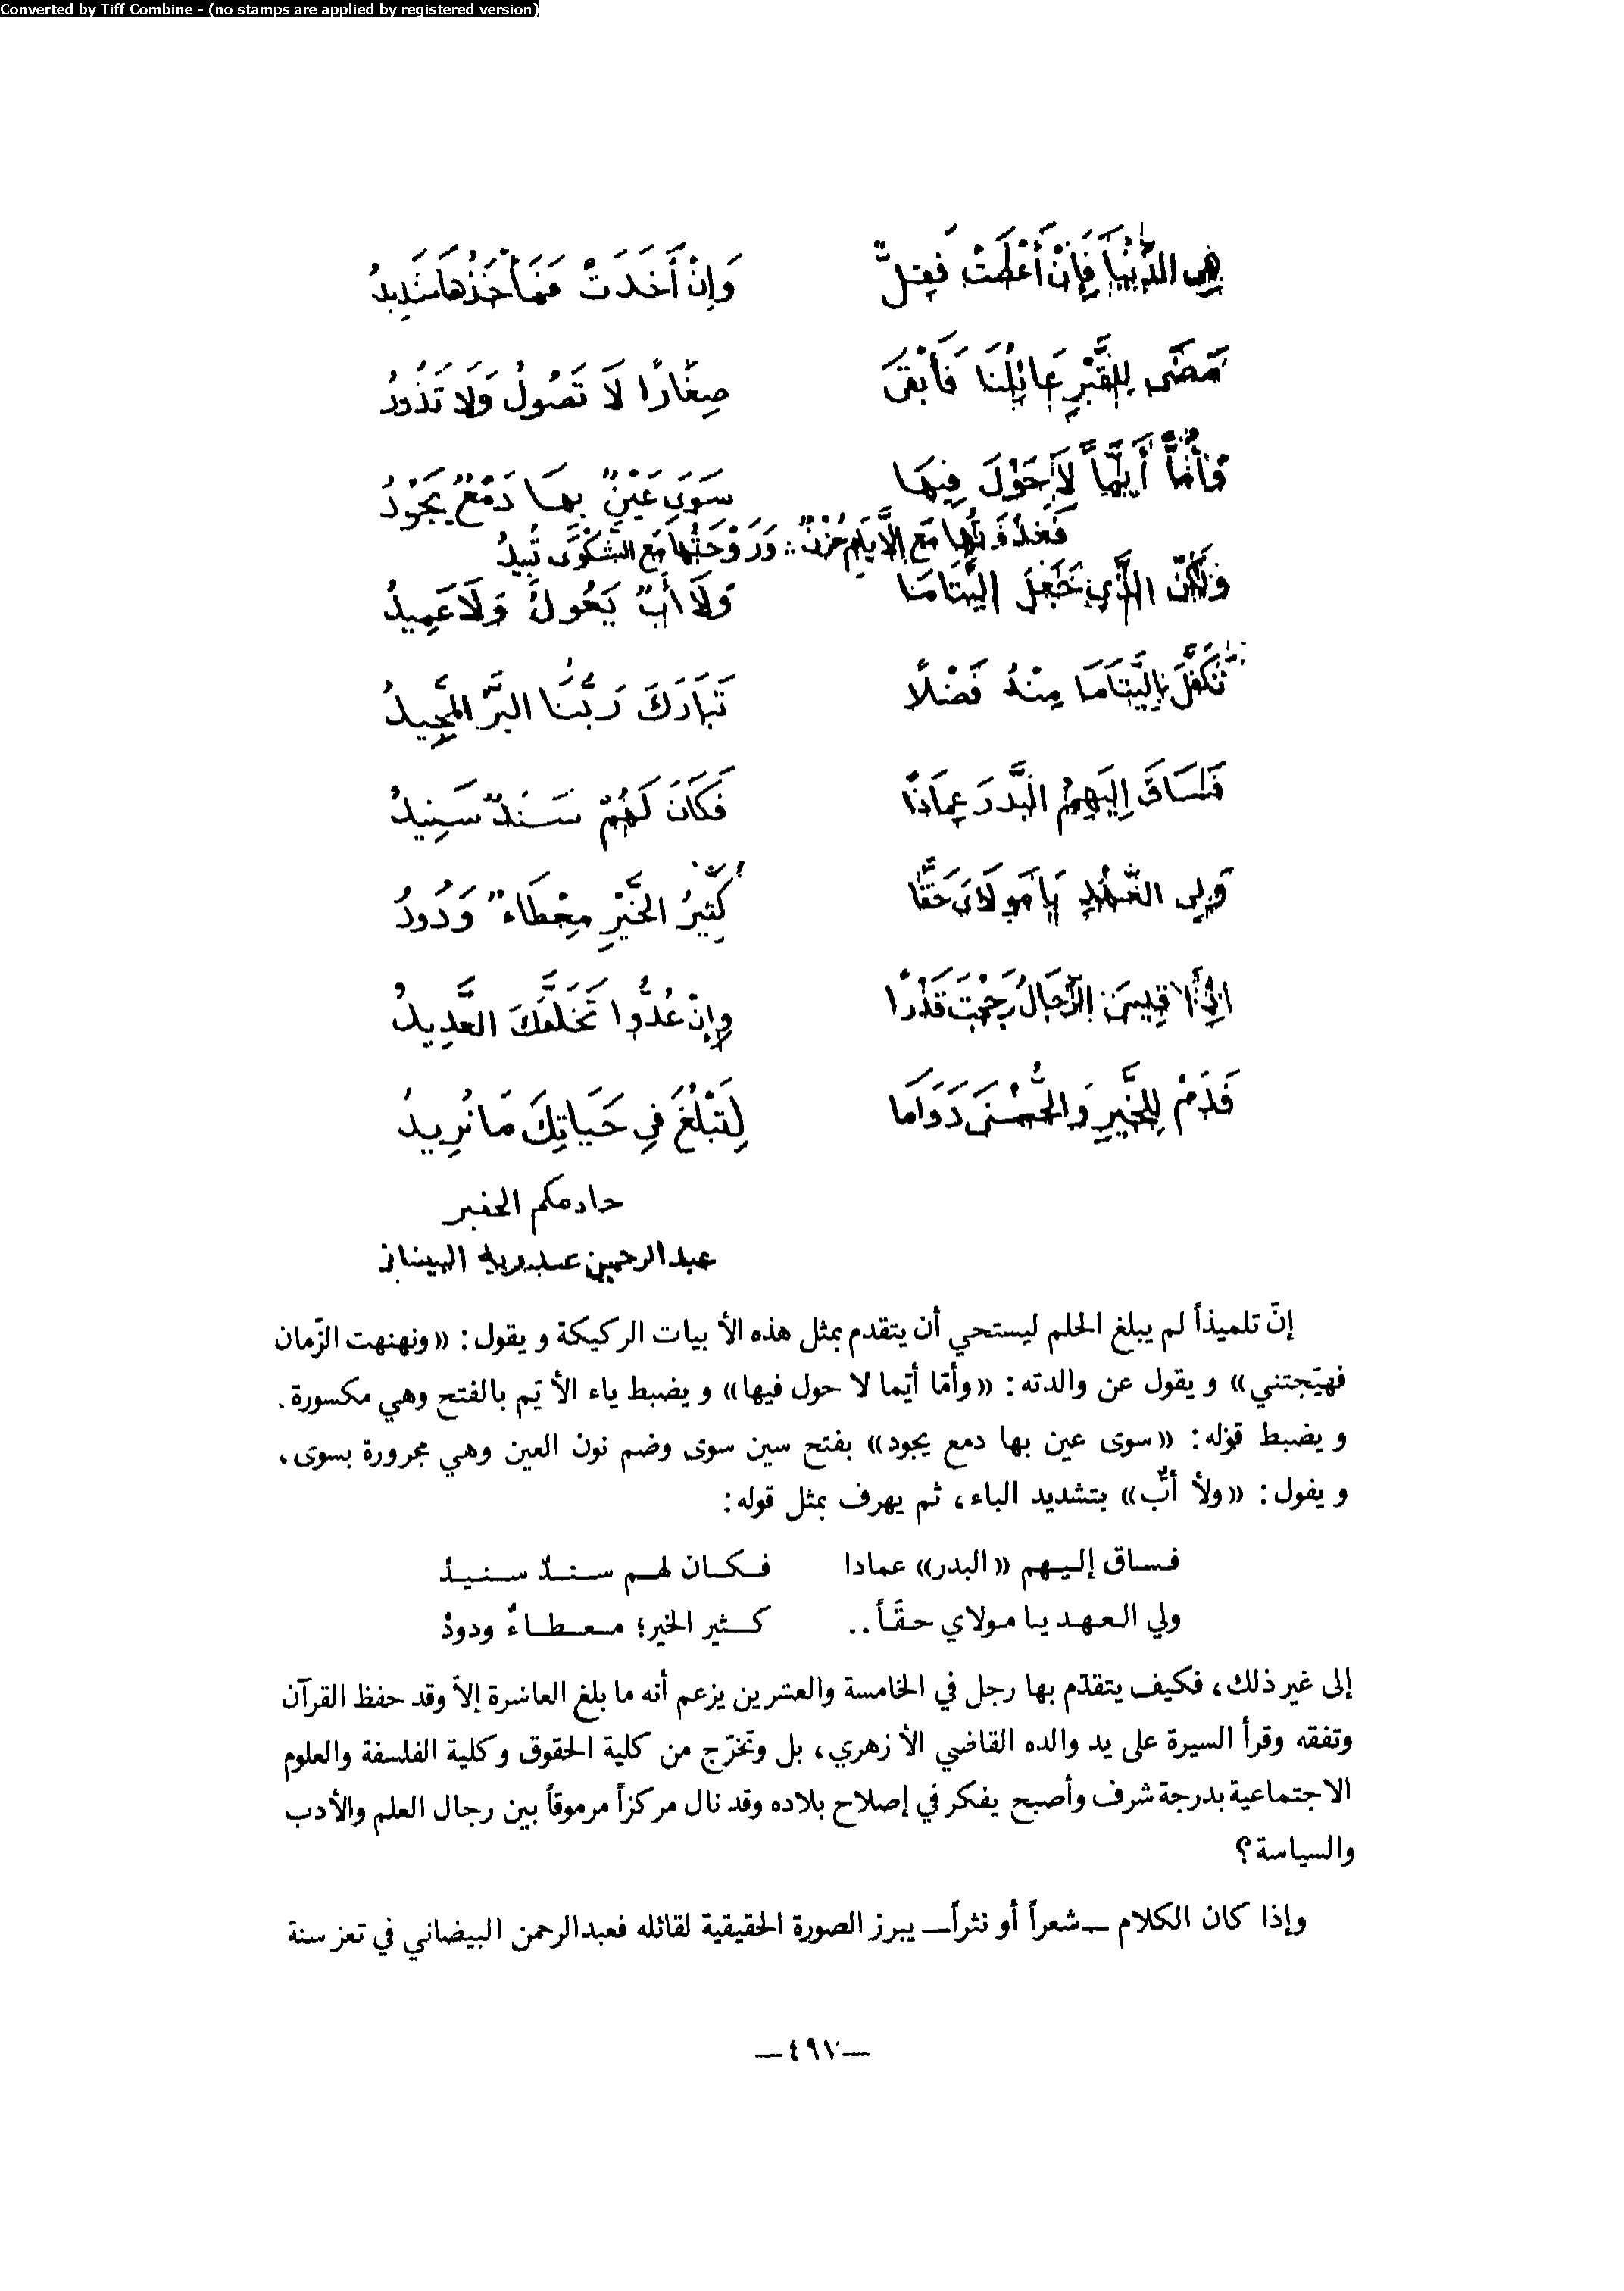 Converted by Tiff Combine - (no stamps are applied by registered version)
هِيَ الدُّنْيَا فَإِنْ أَعْطَتْ فَقِلٌّ وَإِنْ أَخَذَتْ فَمَأْخَذُهَا شَدِيدُ
مَضَى لِلْقَبْرِ عَائِلُنَا فَأَبْقَى صِغَارًا لَا تَصُولُ وَلَا تَذُودُ
وَأُمًّا أَيَّمًا لَا حَوْلَ فِيهَا سَوَى عَيْنٌ بِهَا دَمْعٌ يَجُودُ
فَغُدْوَتُهَا مَعَ الْأَيَّامِ حُزْنٌ :: وَرَوْحَتُهَا مَعَ الشَّكْوَى تَبِيدُ
وَلَكِنَّ الَّذِي جَعَلَ الْيَتَامَا وَلَا أَبٌّ يَعُولُ وَلَا عَمِيدُ
تَكَفَّلَ بِالْيَتَامَا مِنْهُ فَضْلًا تَبَارَكَ رَبُّنَا البَرُّ المَجِيدُ
فَسَاقَ إِلَيْهِمُ الْبَدرَ عِمَادًا فَكَانَ لَهُمْ سَنَدٌ سَنِيدُ
وَلِي العَهْدِ يَا مَولَايَ حَقًّا كَثِيرُ الخَيْرِ مِعْطَاءٌ وَدُودُ
إِذَا قِيسَ الرِّجَالُ رَجَحْتَ قَدْرًا وَإِنْ عُدُّوا تَخَلَّفَكَ العَدِيدُ
فَدُمْ لِلْخَيْرِ وَالْحُسْنَى دَوَامَا لِتَبْلُغَ فِي حَيَاتِكَ مَا تُرِيدُ
خادمكم الحقير
عبد الرحمن عبد ربه البيضاني
إنّ تلميذاً لم يبلغ الحلم ليستحي أن يتقدم بمثل هذه الأبيات الركيكة ويقول: «ونهنهت الزّمان
فهيّجتني» ويقول عن والدته: «وأمّا أيّما لا حول فيها» ويضبط ياء الأيّم بالفتح وهي مكسورة.
ويضبط قوله: «سوى عين بها دمع يجود» بفتح سين سوى وضم نون العين وهي مجرورة بسوى،
ويقول: «ولأ أبٌّ» بتشديد الباء، ثم يهرف بمثل قوله:
فساق إليهم «البدر» عمادا فكان لهم سندٌ سنيدُ
ولي العهد يا مولاي حقّاً.. كثير الخير؛ معطاءٌ ودودُ
إلى غير ذلك، فكيف يتقدّم بها رجل في الخامسة والعشرين يزعم أنه ما بلغ العاشرة إلاّ وقد حفظ القرآن
وتفقه وقرأ السيرة على يد والده القاضي الأزهري، بل وتخرّج من كلية الحقوق وكلية الفلسفة والعلوم
الاجتماعية بدرجة شرف وأصبح يفكر في إصلاح بلاده وقد نال مركزاً مرموقاً بين رجال العلم والأدب
والسياسة؟
وإذا كان الكلام —شعراً أو نثراً— يبرز الصورة الحقيقية لقائله فعبدالرحمن البيضاني في تعز سنة
—٤٩٧—